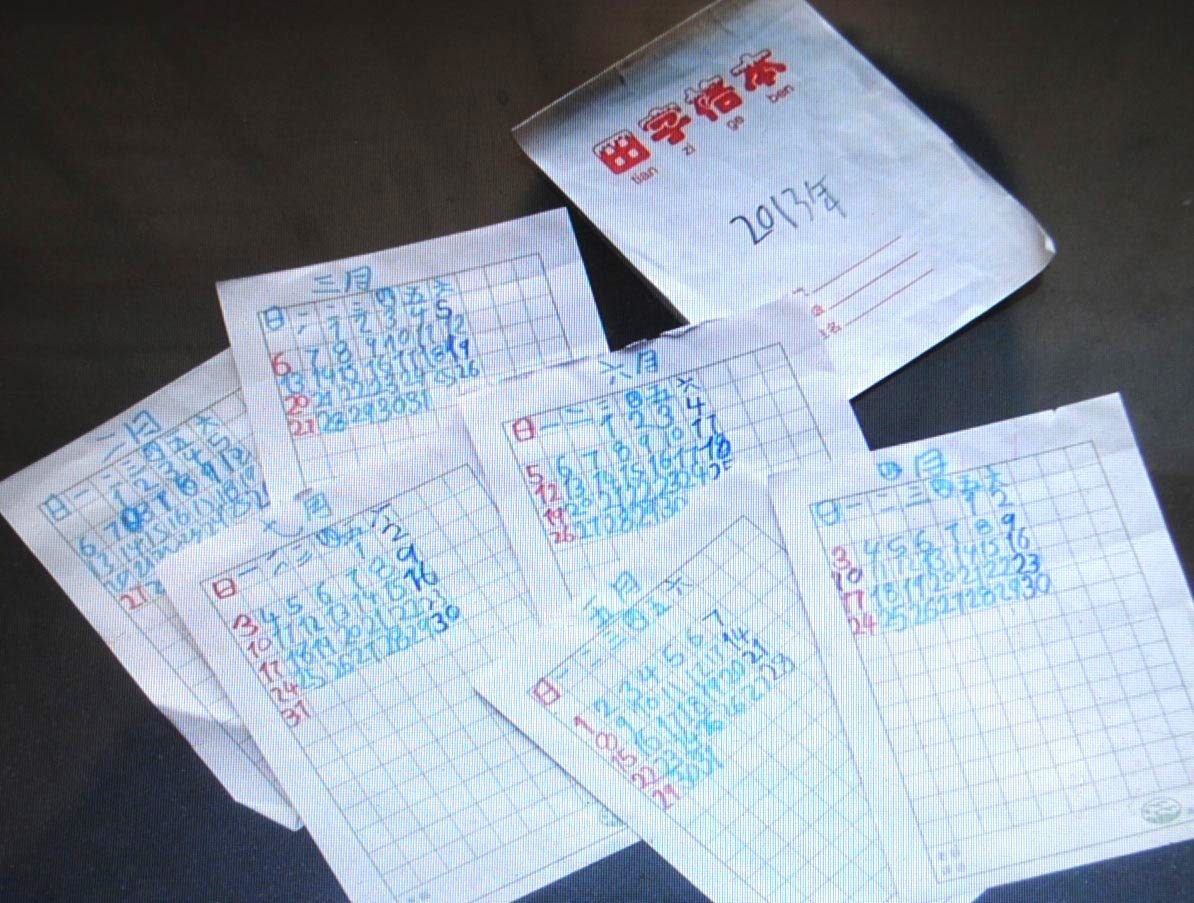 田字格本
tian zi ge ben
2013年
三月
日 一 二 三 四 五 六
1 2 3 4 5
6 7 8 9 10 11 12
13 14 15 16 17 18 19
20 21 22 23 24 25 26
27 28 29 30 31
六月
日 一 二 三 四 五 六
1 2 3 4
5 6 7 8 9 10 11
12 13 14 15 16 17 18
19 20 21 22 23 24 25
26 27 28 29 30
二月
日 一 二 三 四 五 六
1 2 3 4 5
6 7
13 14 15 16 17 18 19
27 28
七月
日 一 二 三 四 五 六
1 2
3 4 5 6 7 8 9
10 11 12 13 14 15 16
17 18 19 20 21 22 23
24 25 26 27 28 29 30
31
四月
日 一 二 三 四 五 六
1 2
3 4 5 6 7 8 9
10 11 12 13 14 15 16
17 18 19 20 21 22 23
24 25 26 27 28 29 30
五月
日 一 二 三 四 五 六
1 2 3 4 5 6 7
8 9 10 11 12 13 14
15 16 17 18 19 20 21
22 23 24 25 26 27 28
29 30 31